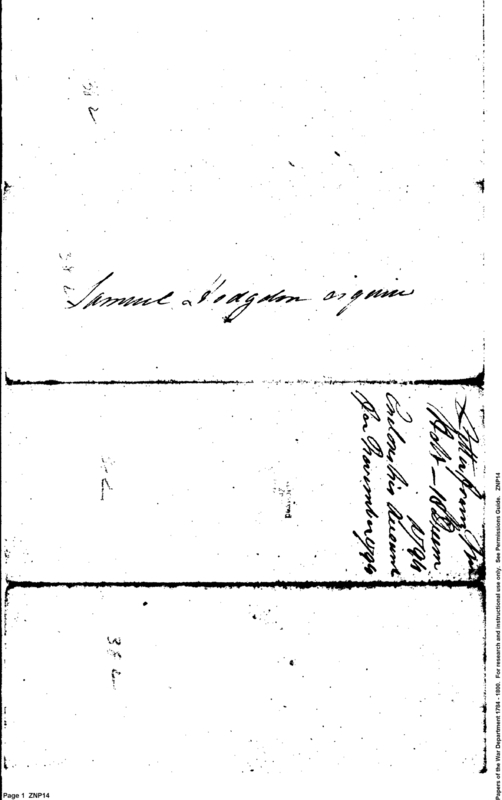 Samuel Hodgdon esquire
Letter from
Holt - 18 Decem
1796
Enclosing Account
for November 1796
Page 1 ZNP14
Papers of the War Department 1784 - 1800. For research and instructional use only. See Permissions Guide. ZNP14